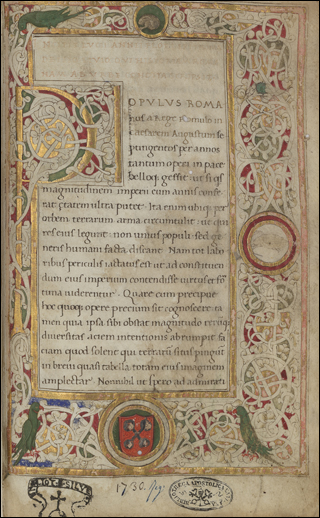 POPULUS ROMA
nos a Rege Romulo in
caesarem Augustum se
ptingentos per annos
tantum operi in pace
belloq; gessit ut si qs
magnitudinem imperii cum annis confe
rat etatem ultra putet. Ita
orbem terrarum arma circumtulit ut qui
res eius legunt non unius populi sed ge
neris humani facta discant. Nam tot labo
ribus periculisq; iactatus est ut ad constituen
dum eius imperium contendisse virtus et for
tuna viderentur. Quare cum precipue
hoc quoq; opere precium sit cognoscere ta
men quia ipsa sibi obstat magnitudo rerūq;
diversitas aciem intentionis abrumpit fa
ciam quod solent qui terrarū situs pingūt
in brevi quasi tabella totam eius imaginem
amplectar. Nonnihil ut spero ad admirati
1730.